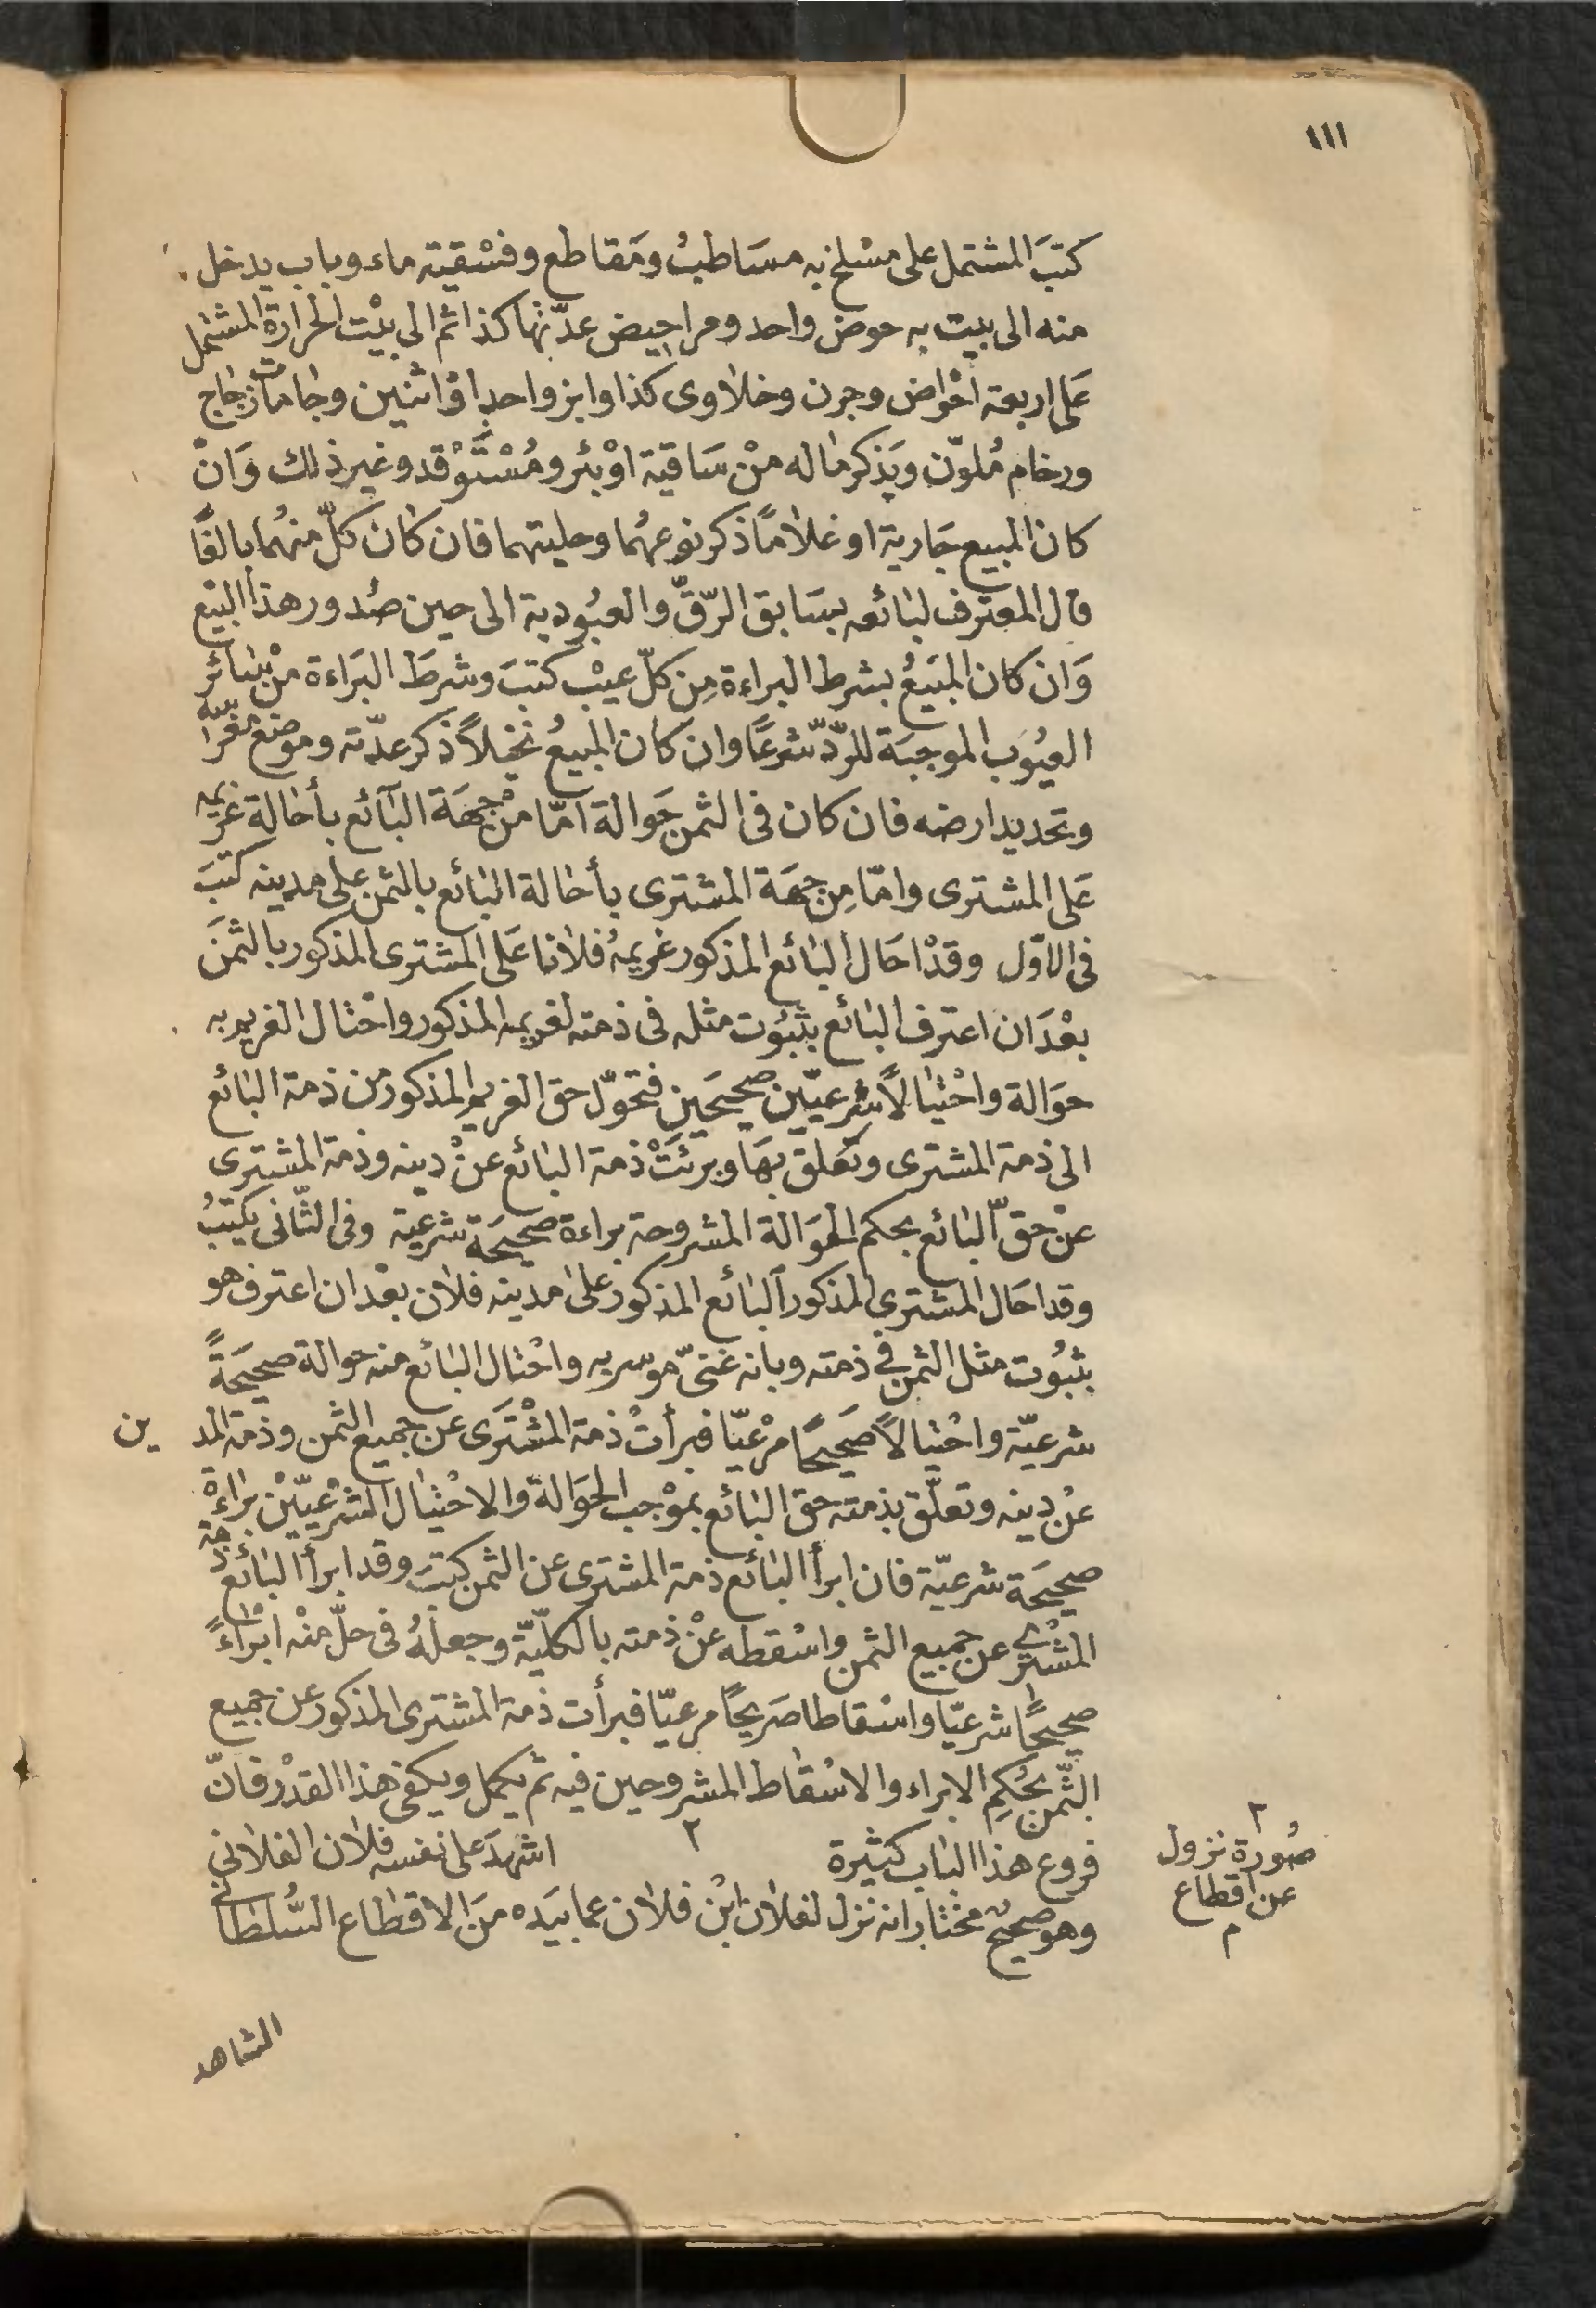 ١١١
كتبَ المشتمل على مسْلخ به مسَاطبُ ومَقاطع وفسْقية ماء وباب يدخل
منه الى بيت به حوض واحد ومراحيض عدّتها كذا ثم الى بيْت الحرارة المشتمل
عَلى اربعة احْواض وجرن وخلاوى كذا وابزو احد او اثنين وجامات زجاج
ورخام مُلوّن ويَذكر ماله منْ سَاقية اوْ بئر ومُسْتَوْقد وغير ذلك وَانْ
كان المبيع جَارية او غلامًا ذكر نوعهُما وحليتهما فان كانَ كلّ منهُما بالغًا
قال المعترف لبائعه بسَابق الرّقّ والعبُودية الى حين صُدور هذا البيْع
وَان كان المَبيعُ بشرط البراءة مِن كلّ عيْب كتبَ وشرطَ البَراءة منْ سائر
العيُوب الموجبَة للرّدّ شرعًا وان كان المبيعُ نخيلاً ذكر عدّته وموضع مقرّه
وتحديد ارضه فان كان فى الثمن حَوالة امّا منْ جهَة البَآئع بأحالة غريمه
عَلى المشترى وامّا مِن جهَة المشترى بأحالة البائع بالثمن على مدينه كتبَ
فى الاوّل وقدْ احَال البائع المذكور غريمهُ فلانا عَلى المشترى المذكور بالثمَن
بعْدَ ان اعترف البائع بثبُوت مثله فى ذمته لغريمه المذكور واحْتال الغريم به
حوَالة واحْتيالاً شرعيّين صحيحَين فتحوّل حق الغريم المذكور من ذمة البائع
الى ذمة المشترى وتعَلق بهَا وبرئَتْ ذمة البائع عنْ دينه وذمة المشترى
عنْ حقّ البائع بحكم الحوَالة المشروحة براءة صَحيحَة شرعية وفى الثّانى يكتبُ
وقد احَال المشترى المذكور البائع المذكور على مدينه فلان بعْد ان اعترف هو
بثبُوت مثل الثمن فى ذمته وبانه غنىّ موسر به واحْتال البائع منه حوالة صحيحَةً
شرعيّة واحْتيالاً صَحيحًا مرْعيّا فبرأتْ ذمة المشْترَى عن جميع الثمن وذمة المد ين
عنْ دينه وتعلّق بذمته حق البائع بموْجب الحوَالة والاحْتيال الشرْعيّيْن براءةً
صحيحَة شرعيّة فان ابرأ البائع ذمة المشترى عن الثمن كتبَ وقد ابرأ البائع ذمة
المشْترى عن جميع الثمن واسْقطه عنْ ذمته بالكلّيّة وجعلهُ فى حلّ منْه ابْراءً
صحيحًا شرعيّا واسْقاطا صَريحًا مرعيّا فبرأت ذمة المشترى المذكور عن جميع
الثّمن بحُكمِ الابراء والاسْقاط المشروحين فيه ثم يكمل ويكفى هذا القدْر فانّ
فروع هذا الباب كثيرة ٢ اشهدَ على نفسه فلان الفلانى
وهو صحيحٌ مختار انه نزل لفلان ابْن فلان عما بيَده منَ الاقطاع السُّلطانى
٢
صُورة نزول
عن اقطاع
م
الشاهد